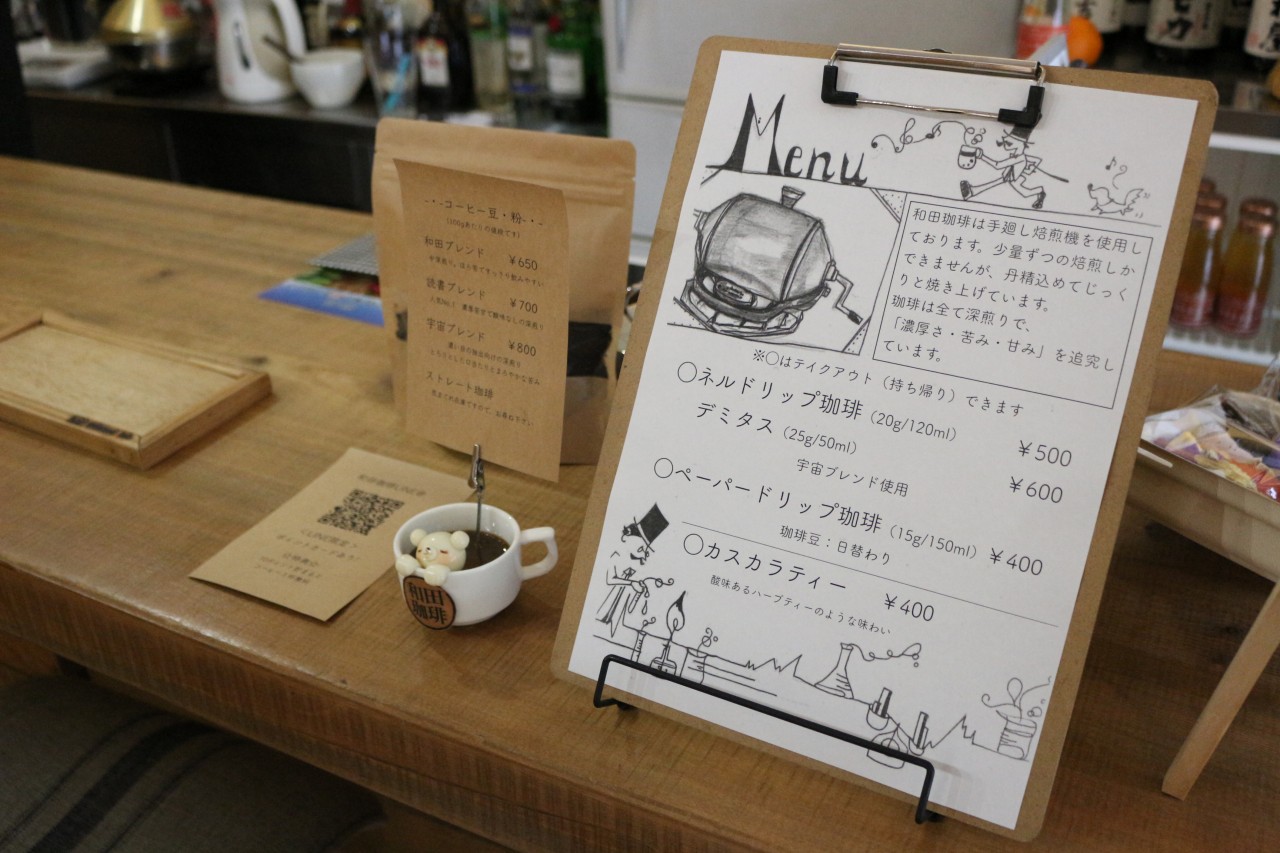 Menu
和田珈琲は手廻し焙煎機を使用し
ております。少量ずつの焙煎しか
できませんが、丹精込めてじっく
りと焼き上げています。
珈琲は全て深煎りで、
「濃厚さ・苦み・甘み」を追究し
ています。
※○はテイクアウト（持ち帰り）できます
○ネルドリップ珈琲（20g/120ml） ¥500
デミタス（25g/50ml） ¥600
宇宙ブレンド使用
○ペーパードリップ珈琲（15g/150ml） ¥400
珈琲豆：日替わり
○カスカラティー ¥400
酸味あるハーブティーのような味わい
コーヒー豆・粉
(100gあたりの価格です)
和田ブレンド ¥650
読書ブレンド ¥700
宇宙ブレンド ¥800
ストレート珈琲
<LINE限定>
和田
珈琲